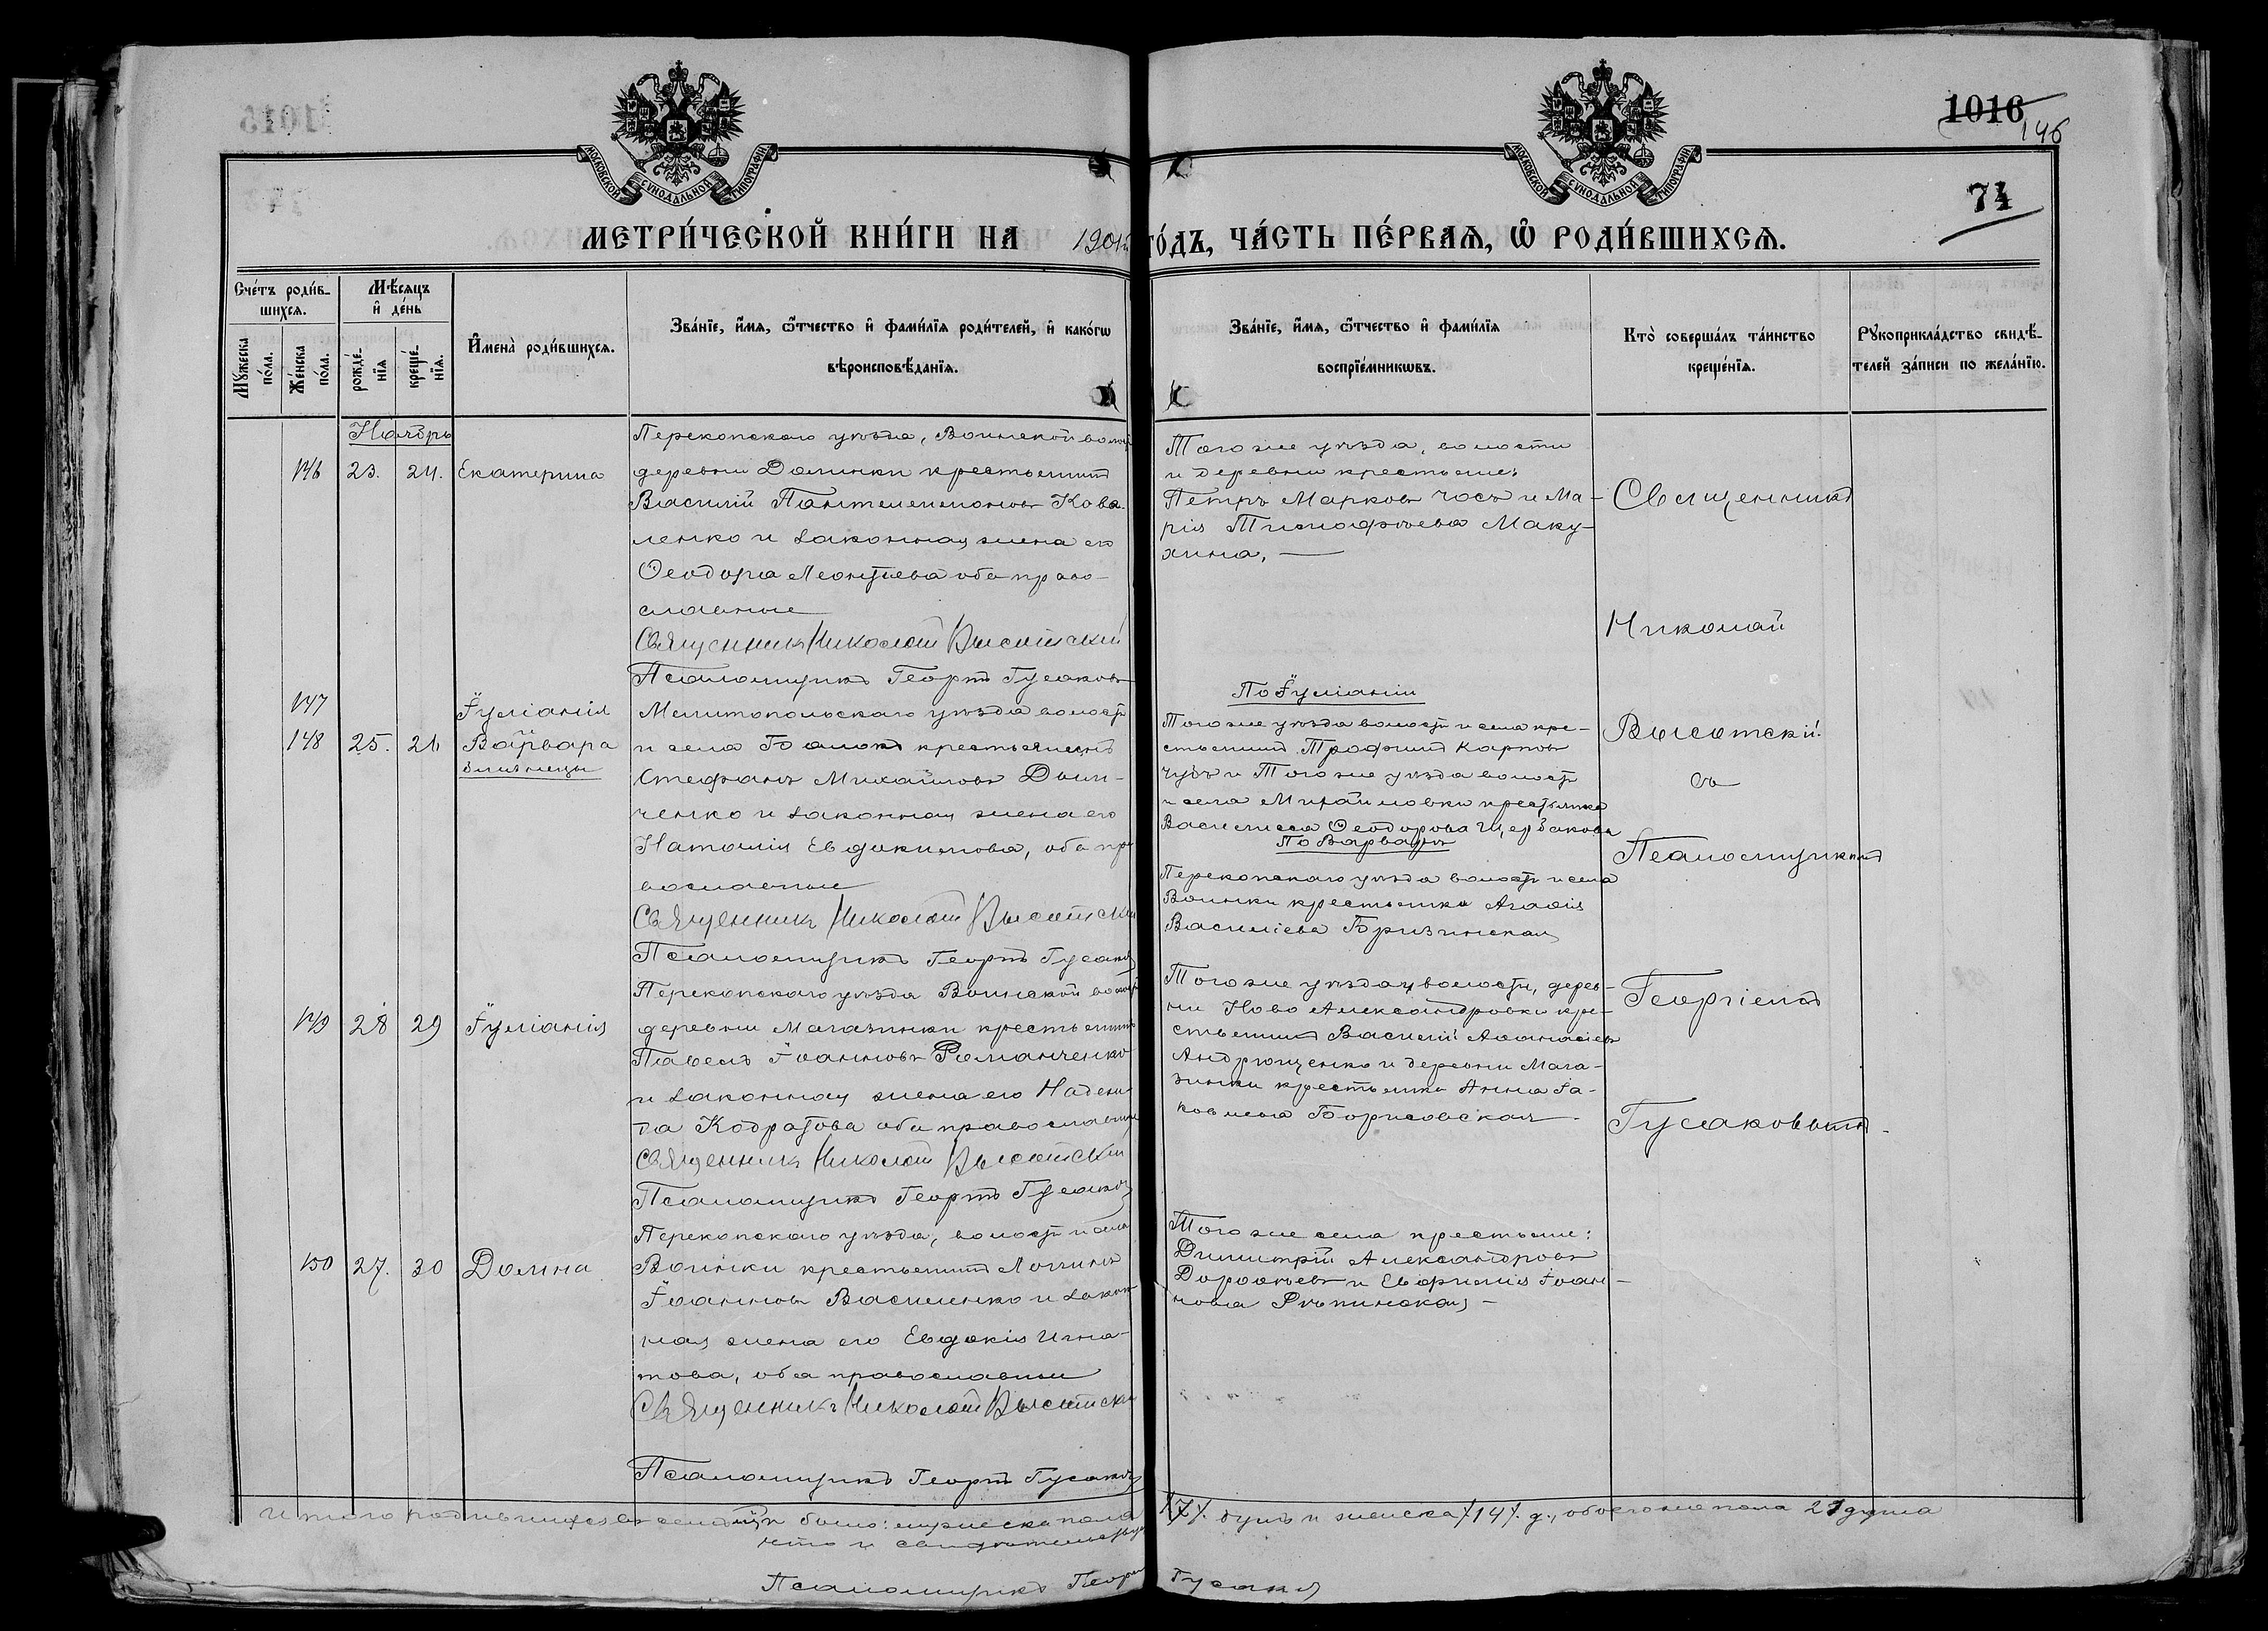 1016
146
74
МОСКОВСКОЙ СѴНОДАЛЬНОЙ ТИПОГРАФІИ
МОСКОВСКОЙ СѴНОДАЛЬНОЙ ТИПОГРАФІИ
МЕТРИ́ЧЕСКОЙ КНИ́ГИ НА 1901й ГО́ДЪ, ЧА́СТЬ ПЕ́РВАѦ, Ѡ҆ РОДИ́ВШИХСѦ.
Сче́тъ роди́в-
шихсѧ.
Мꙋ́жеска по́ла.
Же́нска по́ла.
Мѣ́сѧцъ
и҆ де́нь
рожде́-
нїѧ
креще́-
нїѧ.
И҆мена̀ роди́вшихсѧ.
Зва́нїе, и҆́мѧ, ѻ҆́тчество и҆ фами́лїѧ роди́телей, и҆ како́гѡ
вѣроисповѣ́данїѧ.
Зва́нїе, и҆́мѧ, ѻ҆́тчество и҆ фами́лїѧ
воспрїе́мникѡвъ.
Кто̀ соверша́лъ та́инство
креще́нїѧ.
Рꙋкоприкла́дство свидѣ́-
телей за́писи по жела́нїю.
Ноябрь
146 23. 24. Екатерина
Перекопскаго уѣзда, Воинской волос
деревни Долинки крестьянинъ
Василій Пантелеимоновъ Кова-
ленко и законная жена его
Ѳеодора Леонтіева оба право-
славные
Священникъ Николай Высотскій
Псаломщикъ Георгій Гусаковъ
Того же уѣзда, волости
и деревни крестьяне:
Петръ Марковъ Чосъ и Ма-
рія Тимофѣева Маку-
хина, —
147 Іуліанія
148 25. 26 Варвара
близнецы
Мелитопольскаго уѣзда волости
и села Балокъ крестьянинъ
Стефанъ Михайловъ Дьяч-
ченко и законная жена его
Наталія Евдокимова, оба пра
вославные
Священникъ Николай Высотскій
Псаломщикъ Георгій Гусаковъ
По Іуліаніи
Того же уѣзда волости и села кре-
стьянинъ Трофимъ Карповъ
Чубъ и Того же уѣзда волости
и села Михайловки крестьянка
Василисса Ѳеодорова Щербакова
По Варварѣ
Перекопскаго уѣзда волости и села
Воинки крестьянка Агафія
Василіева Бризинская
149 28 29 Іуліанія
Перекопскаго уѣзда Воинской волос
деревни Магазинки крестьянинъ
Павелъ Іоанновъ Романченко
и законная жена его Надеж-
да Кодратова оба православные
Священникъ Николай Высотскій
Псаломщикъ Георгій Гусаковъ
Того же уѣзда и волости, дерев-
ни Ново Александровки кре-
стьянинъ Василій Аѳанасіевъ
Андрющенко и деревни Мага-
зинки крестьянка Анна Іа-
ковлева Борисовская.
150 27. 30 Домна
Перекопскаго уѣзда, волости и села
Воинки крестьянинъ Логгинъ
Іоанновъ Василенко и закон-
ная жена его Евдокія Игна-
това, оба православные
Священникъ Николай Высотскій
Псаломщикъ Георгій Гусаковъ
Того же села крестьяне:
Димитрій Александровъ
Дороѳеевъ и Евфимія Іоан-
нова Рѣпинская —
Священникъ
Николай
Высотскій
съ
Псаломщикомъ
Георгіемъ
Гусаковымъ.
Итого родившихся было: мужеска пола /7/. душъ и женска /14/. д., обоего же пола 21 душа
что и свидѣтельствую
Псаломщикъ Георгій Гусаковъ